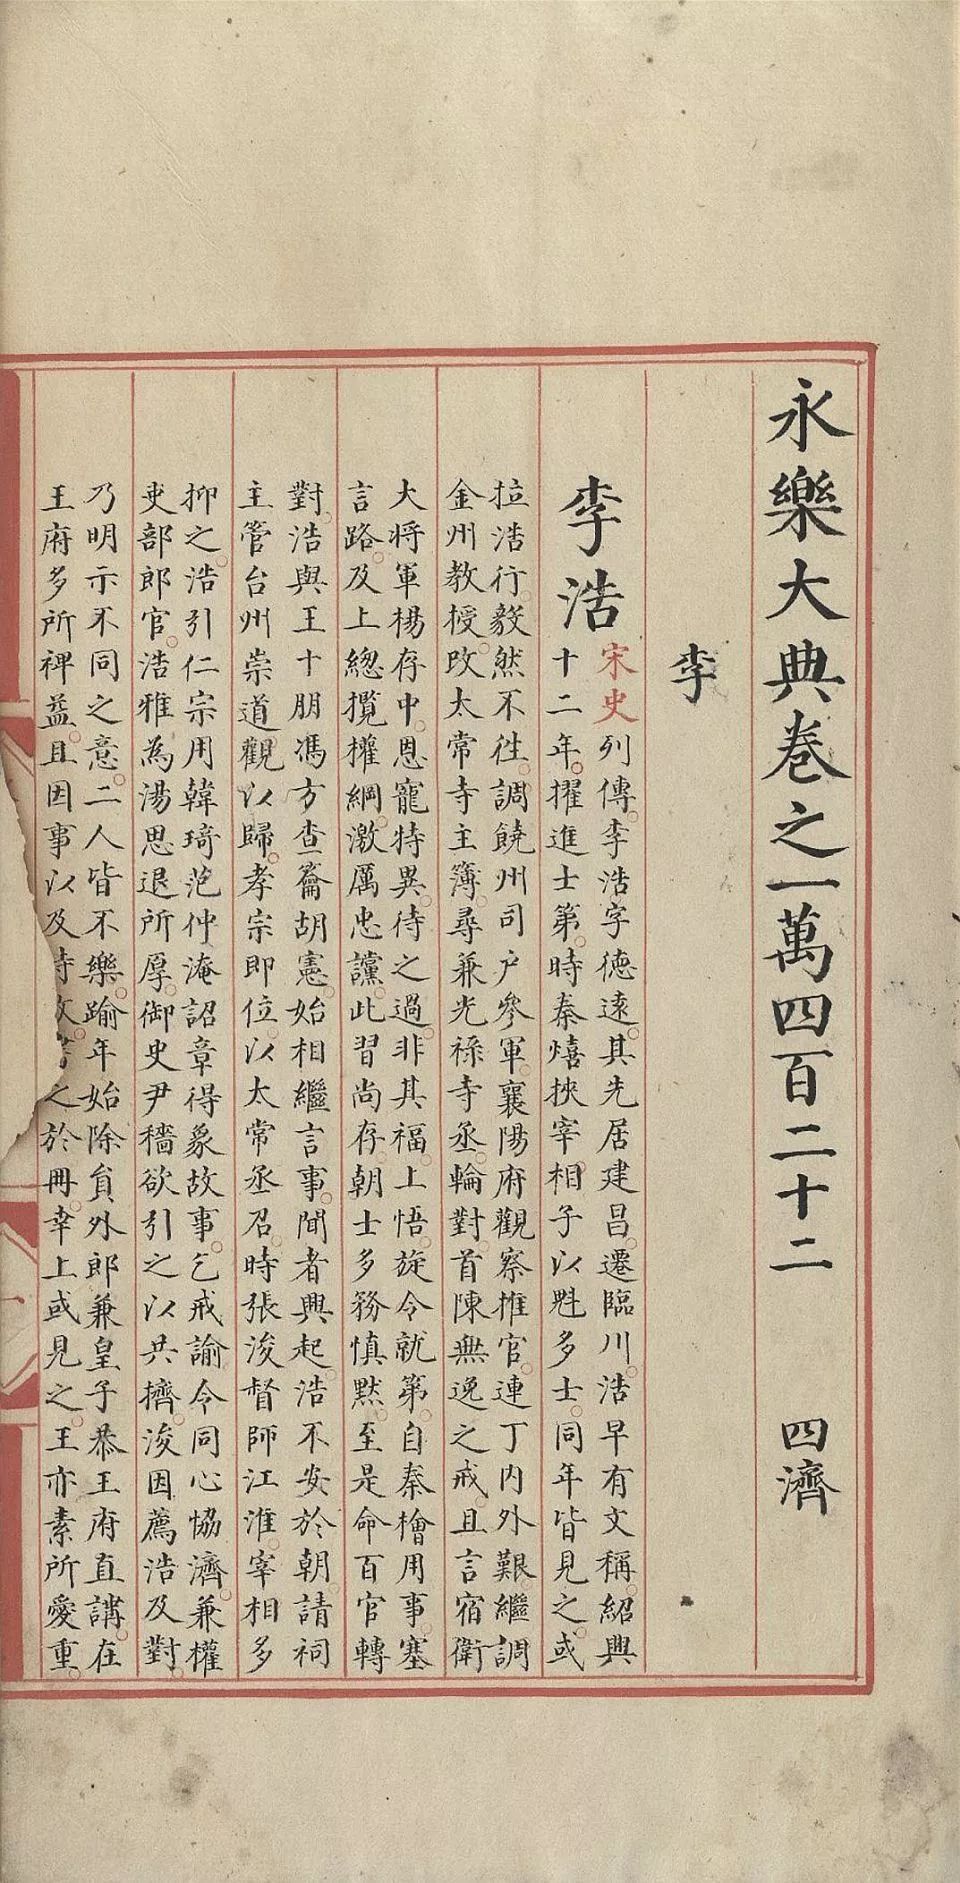 永樂大典卷之一萬四百二十二 四濟
李
李浩
宋史列傳李浩字德遠其先居建昌遷臨川浩早有文稱紹興
十二年擢進士第時秦熺挾宰相子以魁多士同年皆見之或
拉浩行毅然不往調饒州司户參軍襄陽府觀察推官連丁內外艱繼調
金州教授改太常寺主簿尋兼光祿寺丞輪對首陳無逸之戒且言宿衛
大將軍楊存中恩寵特異待之過非其福上悟旋令就第自秦檜用事塞
言路及上緫攬權綱激厲忠讜此習尚存朝士多務慎默至是命百官轉
對浩與王十朋馮方查籥胡憲始相繼言事間者興起浩不安於朝請祠
主管台州崇道觀以歸孝宗即位以太常丞召時張浚督師江淮宰相多
抑之浩引仁宗用韓琦范仲淹詔章得象故事乞戒諭令同心恊濟兼權
吏部郎官浩雅為湯思退所厚御史尹穡欲引之以共擠浚因薦浩及對
乃明示不同之意二人皆不樂踰年始除貟外郎兼皇子恭王府直講在
王府多所裨益且因事以及時之於冊幸上或見之王亦素所愛重